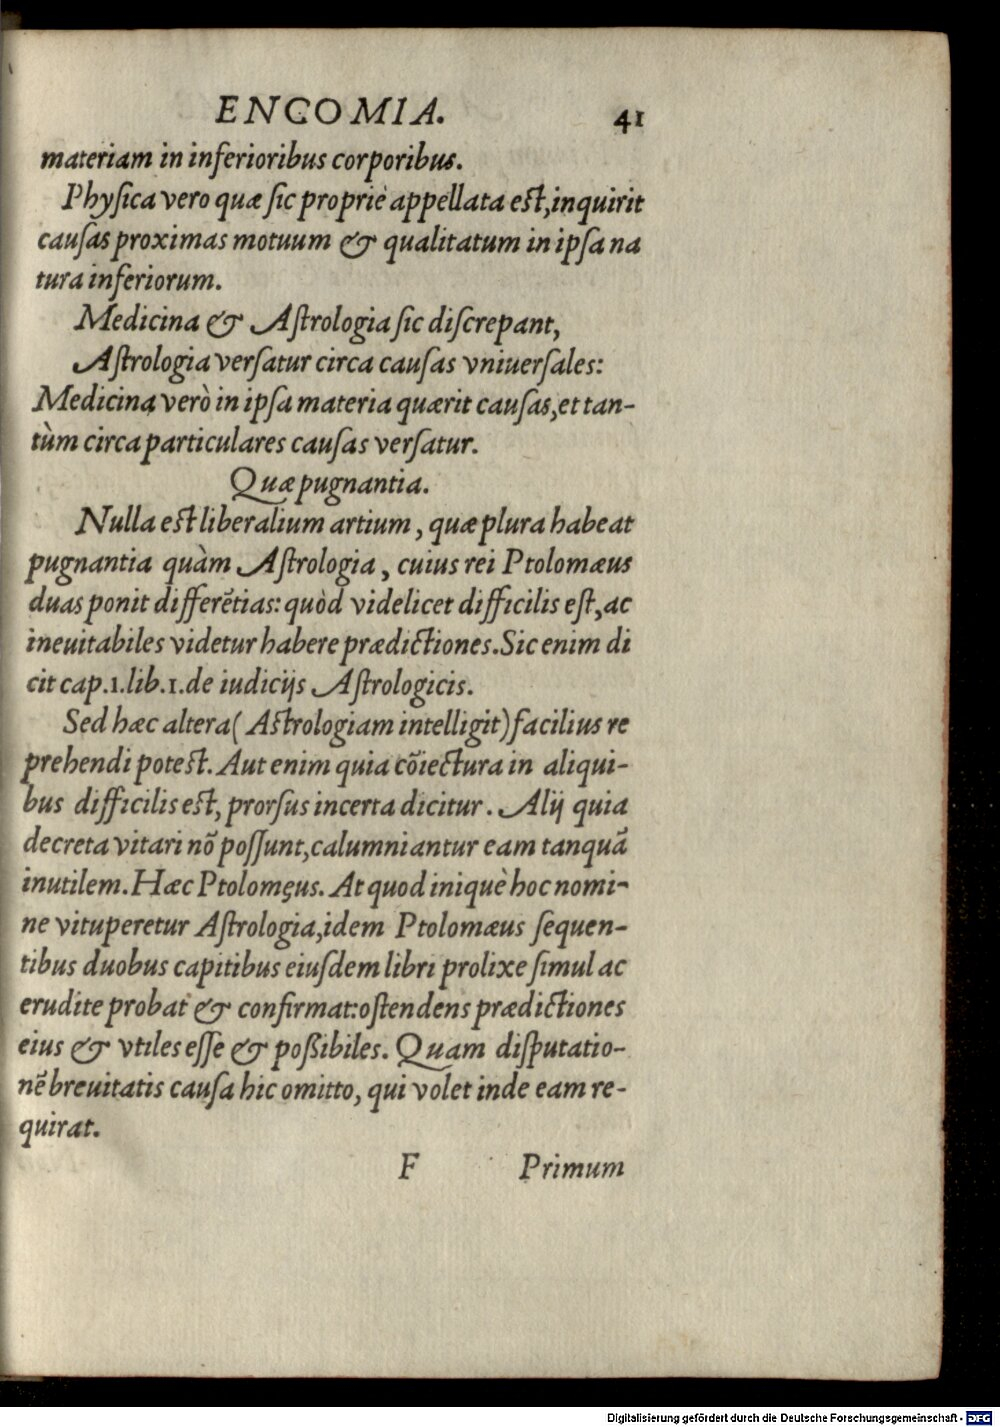 ENCOMIA. 41
materiam in inferioribus corporibus.
Physica vero quæ ſic propriè appellata eſt, inquirit
cauſas proximas motuum & qualitatum in ipſa na
tura inferiorum.
Medicina & Aſtrologia ſic diſcrepant,
Aſtrologia verſatur circa cauſas vniuerſales:
Medicina verò in ipſa materia quærit cauſas, et tan-
tùm circa particulares cauſas verſatur.
Quæ pugnantia.
Nulla eſt liberalium artium, quæ plura habeat
pugnantia quàm Aſtrologia, cuius rei Ptolomæus
duas ponit differẽtias: quòd videlicet difficilis eſt, ac
ineuitabiles videtur habere prædictiones. Sic enim di
cit cap.1.lib.1.de iudicijs Aſtrologicis.
Sed hæc altera (Aſtrologiam intelligit) facilius re
prehendi poteſt. Aut enim quia cõiectura in aliqui-
bus difficilis eſt, prorſus incerta dicitur. Alij quia
decreta vitari nõ poſſunt, calumniantur eam tanquã
inutilem. Hæc Ptolomęus. At quod iniquè hoc nomi-
ne vituperetur Aſtrologia, idem Ptolomæus ſequen-
tibus duobus capitibus eiuſdem libri prolixe ſimul ac
erudite probat & confirmat: oſtendens prædictiones
eius & vtiles eſſe & poßibiles. Quam diſputatio-
nẽ breuitatis cauſa hic omitto, qui volet inde eam re-
quirat.
F Primum
Digitalisierung gefördert durch die Deutsche Forschungsgemeinschaft - DFG